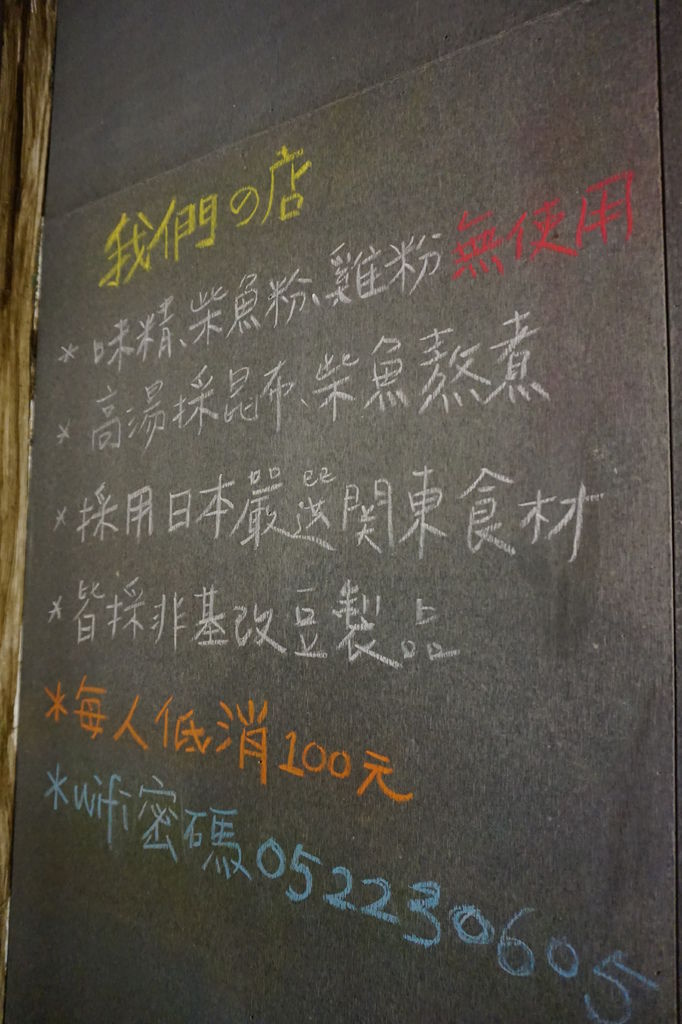 我們の店
* 味精、柴魚粉、雞粉 無使用
* 高湯採昆布、柴魚熬煮
* 採用日本嚴選関東食材
* 皆採非基改豆製品
*每人低消100元
*wifi密碼0522230605